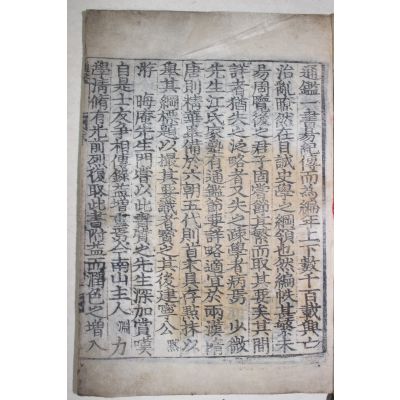 通鑑一書易紀傳而為編年上下數千百載興亡
治亂瞭然在目誠史學之綱領也然編帙甚繁未
易周覽後之君子固嘗節其繁而取其要矣其間
詳者猶失之泛略者又失之疎學者病焉 少微
先生江氏家塾有通鑑節要詳略適宜於兩漢隋
唐則精華畢備於六朝五代則首末具存點抹以
舉其綱標題以撮其要識者寶之其後建寧公 黙
游 晦庵先生門嘗以此書質之先生深加賞嘆
自是士友爭相傳錄益增重焉今南山主人 淵 力
學清脩有光前烈復取此書附益而潤色之增入